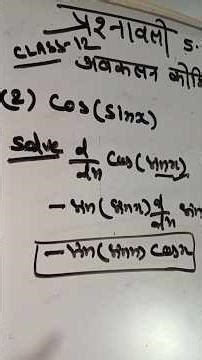 प्रश्नावली 5.
CLASS-12
अवकलन कीजि
(2) Cos(Sinx)
Solve d/dx Cos(sinx)
-sin(sinx) d/dx sin
-sin(sinx) cosx